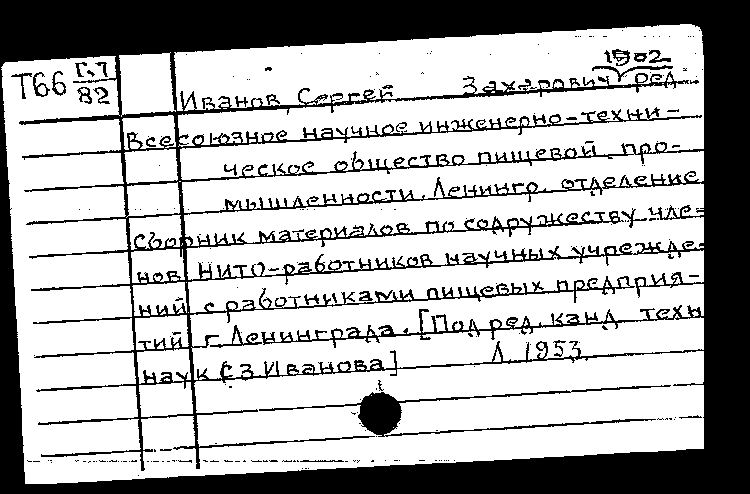 1902
Т66 Г.7 Иванов, Сергей Захарович, ред.
82
Всесоюзное научное инженерно-техни-
ческое общество пищевой про-
мышленности. Ленингр. отделение
Сборник материалов по содружеству чле-
нов НИТО-работников научных учрежде-
ний с работниками пищевых предприя-
тий г. Ленинграда. [Под ред. канд. техн
наук С З Иванова] Л. 1953.